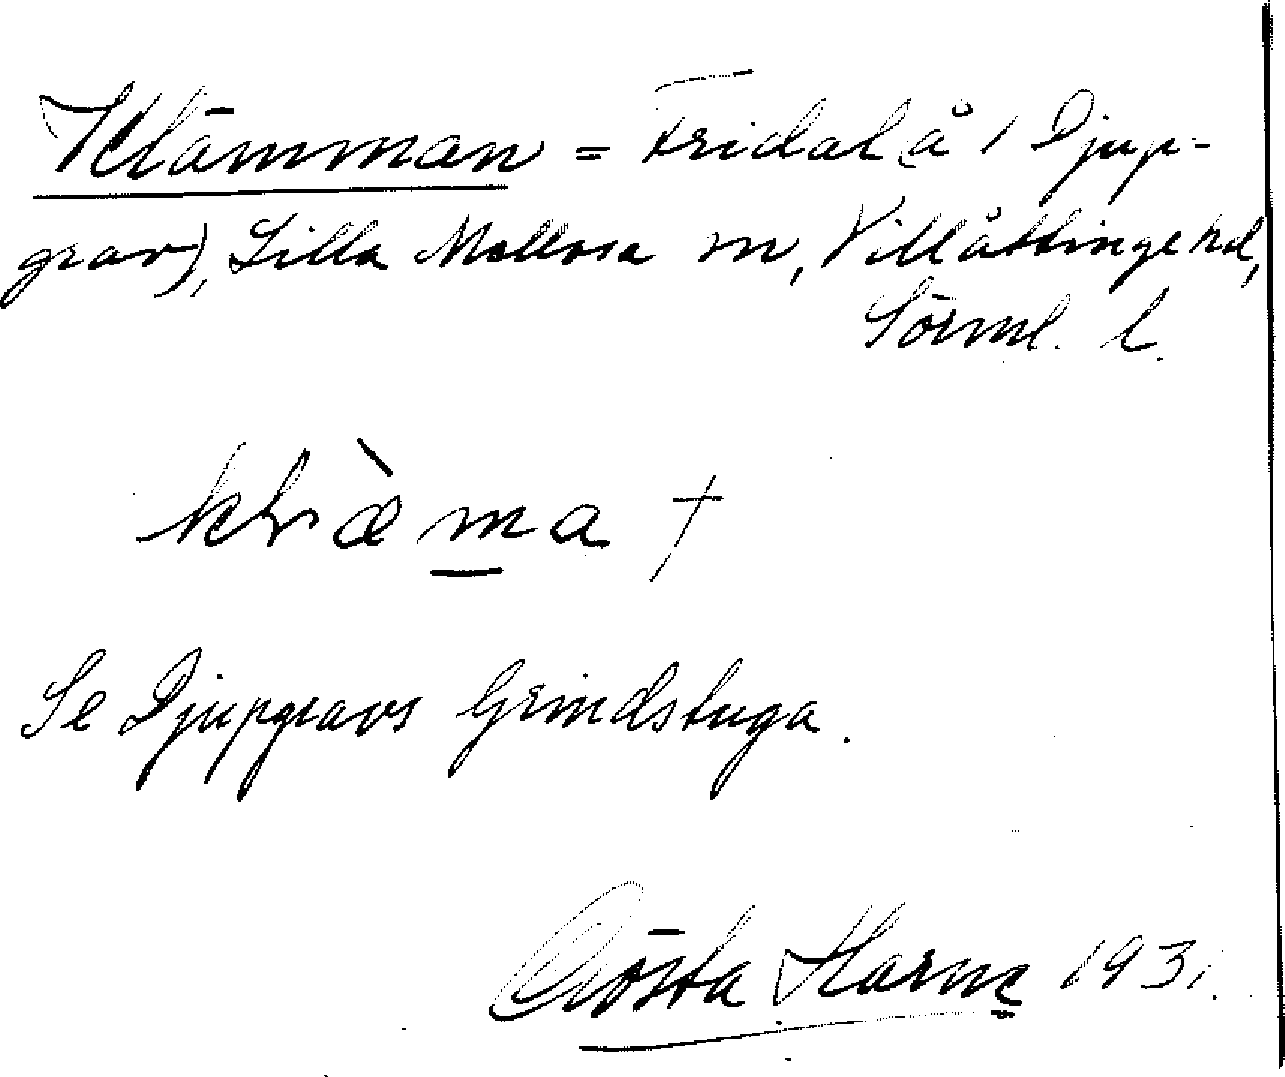 Klämman = Fridal (å / Djup-
grav), Lilla Mellösa sn, Villåttinge hd,
Sörml. l.
klæ̀ma †
Se Djupgravs Grindstuga.
Gösta Harne 1931.